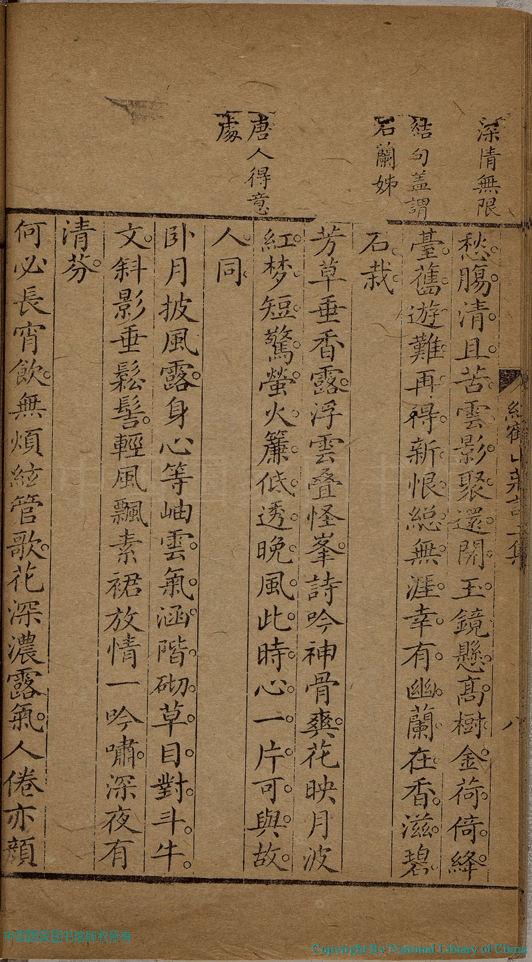 深情無限
結句蓋謂
石蘭姊
唐人得意
處
愁腸清且苦雲影聚還開玉鏡懸高樹金荷倚絳
臺舊遊難再得新恨絕無涯幸有幽蘭在香滋碧
石栽
芳草垂香露浮雲叠怪峯詩吟神骨爽花映月波
紅梦短驚螢火簾低透晚風此時心一片可與故
人同
卧月披風露身心等岫雲氣涵階砌草目對斗牛
文斜影垂鬆髻輕風飄素裙放情一吟嘯深夜有
清芬
何必長宵飲無煩絃管歌花深濃露氣人倦亦顏
八
Copyright By National Library of China